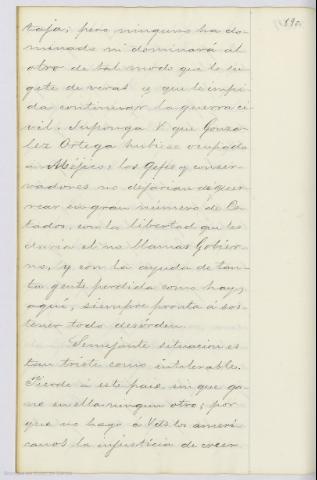 890.
taja; pero ninguno ha do-
minado ni dominará al
otro de tal modo que lo su-
gete de veras y que le impi-
da continuar la guerra ci-
vil. Suponga V. que Gonza-
lez Ortega hubiese ocupado
á Méjico: los Gefes y conser-
vadores no dejarian de guer-
rear en gran número de Es-
tados, con la libertad que les
daria el no llamar Gobier-
no, y con la ayuda de tan-
ta gente perdida como hay
aquí, siempre pronta á sos-
tener todo desórden.
Semejante situacion es
tan triste como intolerable.
Pierde á este pais sin que ga-
ne en ella ningun otro; por
que no hago á Vds. los ameri-
canos la injusticia de creer